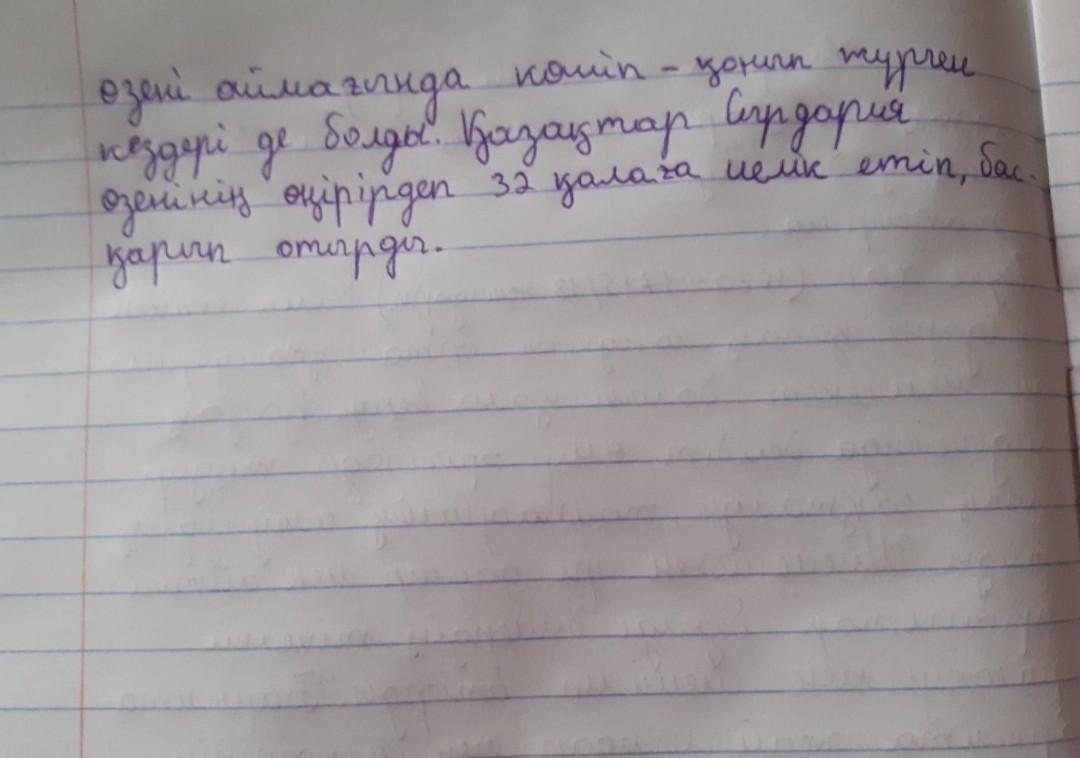 өзені аймағында көшіп - қонып жүрген
кездері де болды. Қазақтар Сырдария
өзенінің өңірірдеп 32 қалаға иелік етіп, бас-
қарып отырды.